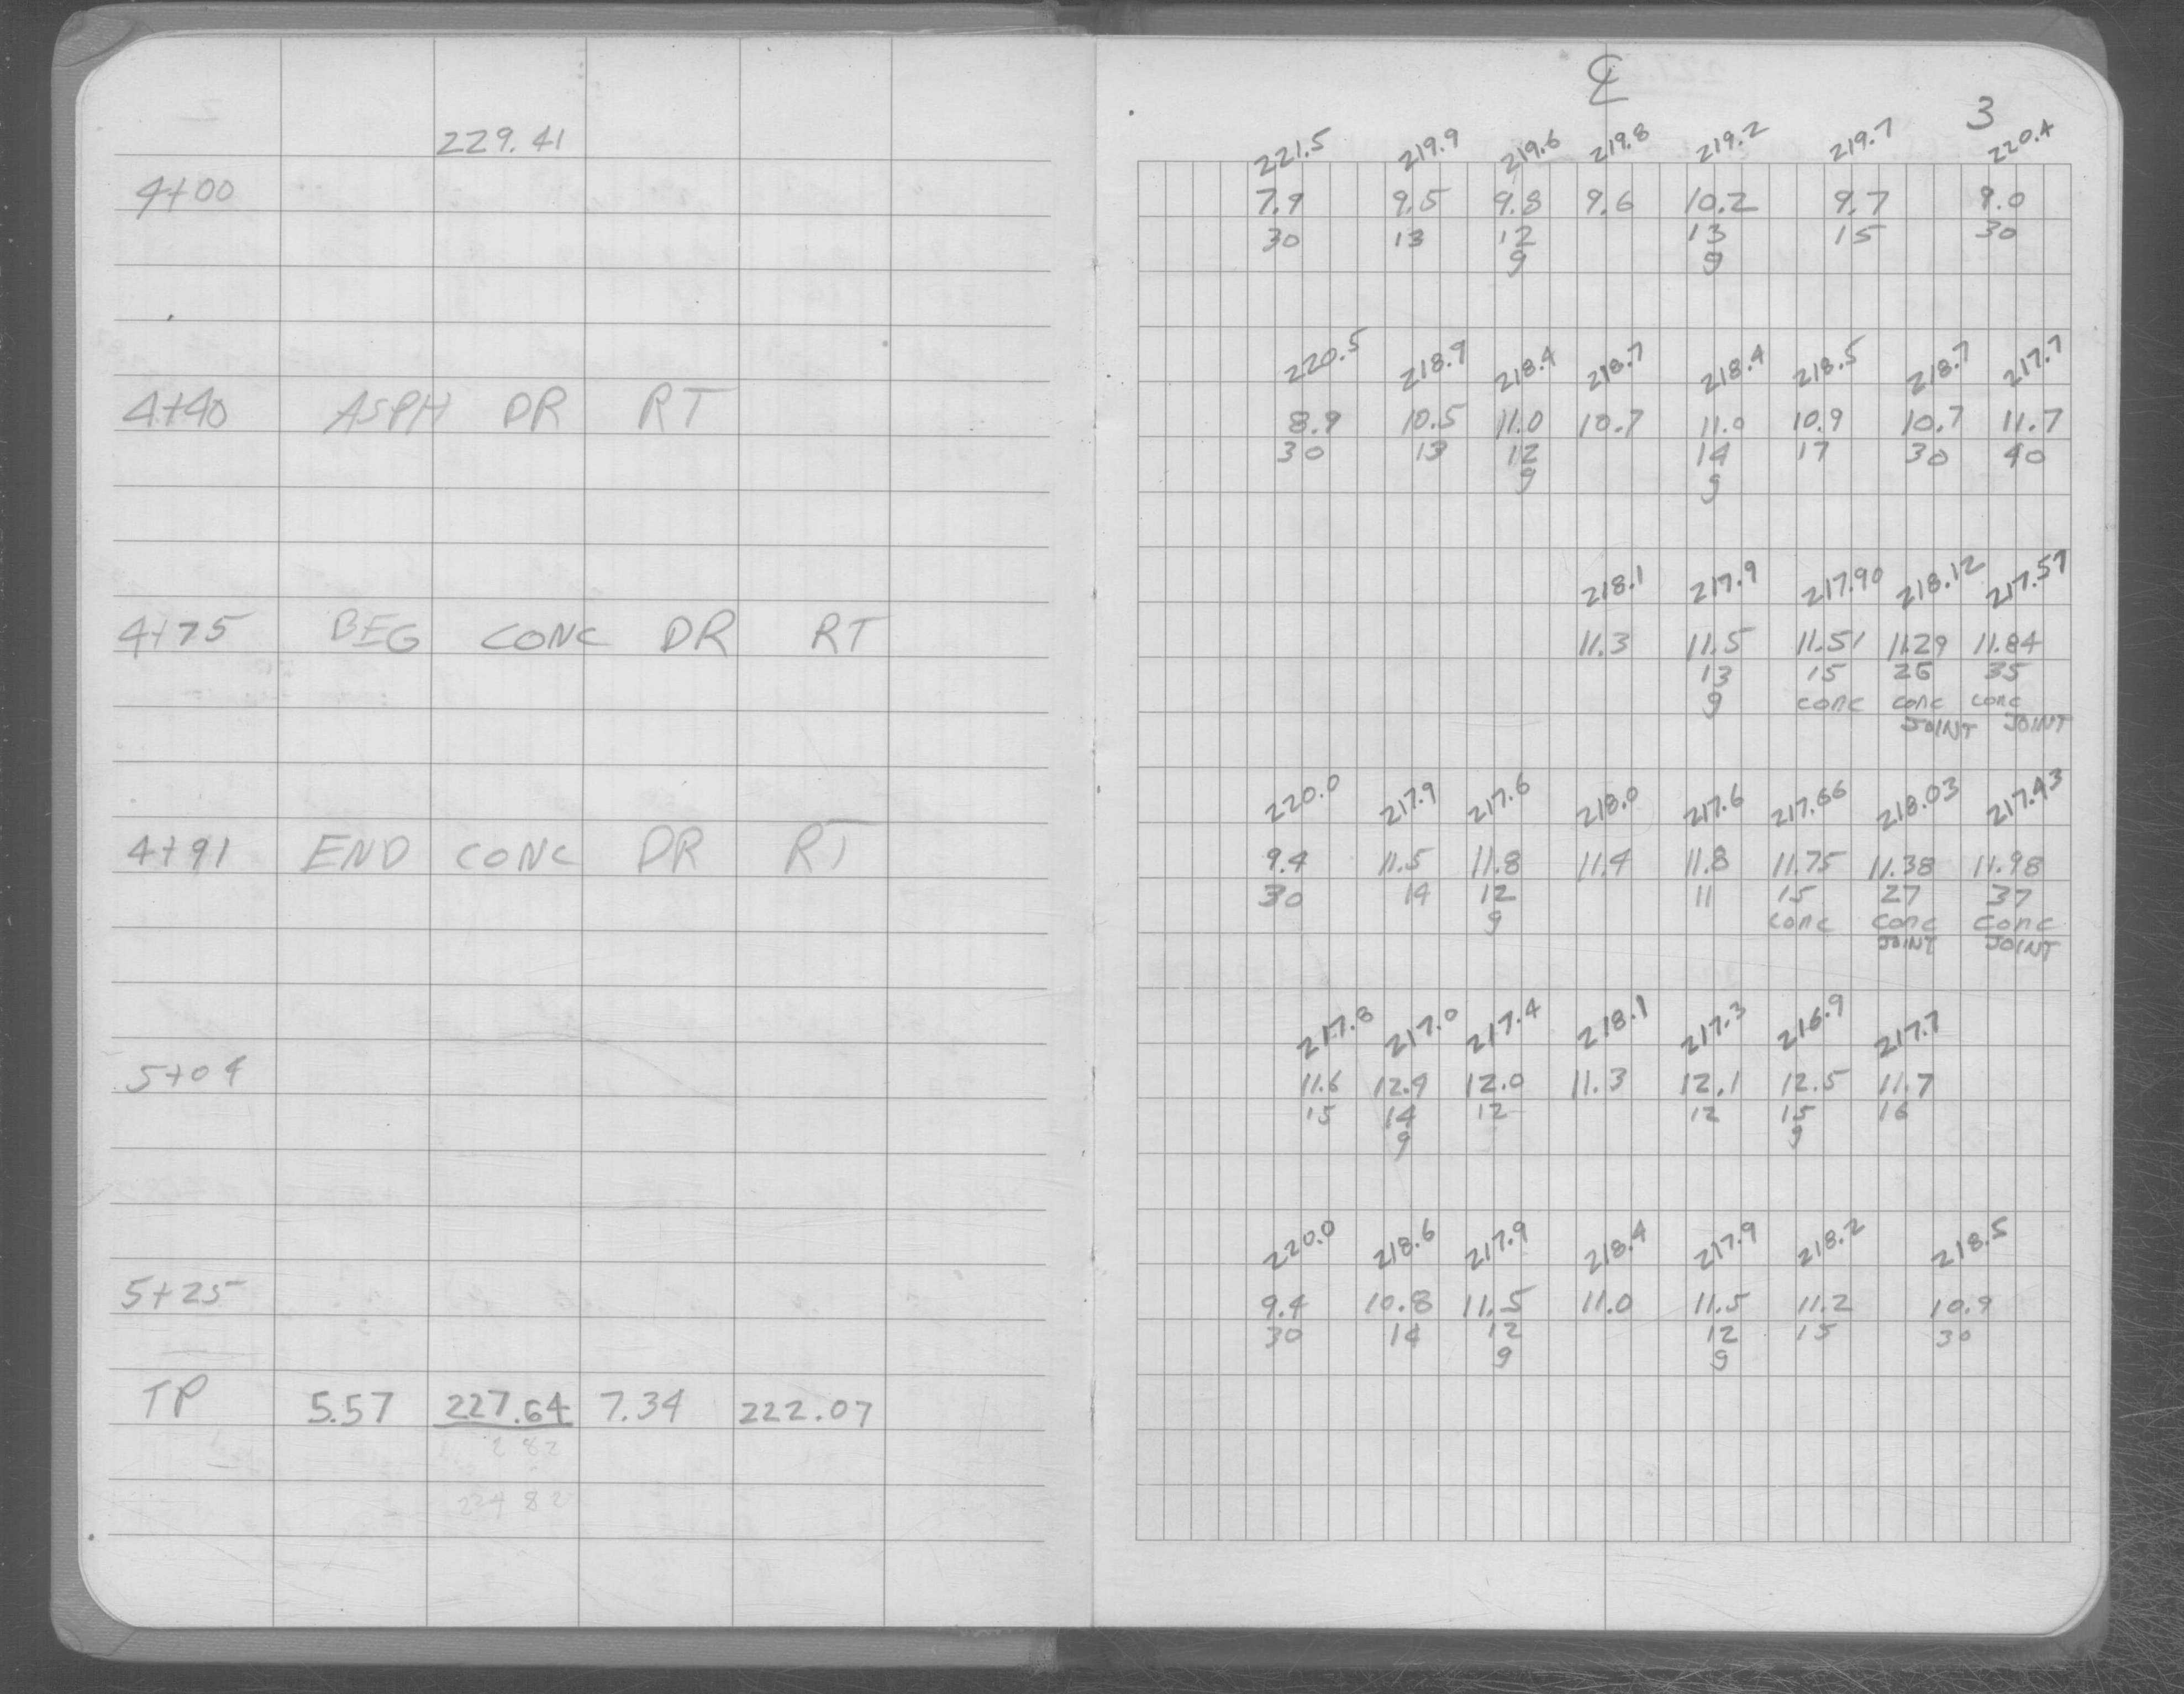 ℄
3
229.41
221.5 219.9 219.6 219.8 219.2 219.7 220.4
4+00 7.9 9.5 9.8 9.6 10.2 9.7 9.0
30 13 12 13 15 30
9 9
220.5 218.9 218.4 218.7 218.4 218.5 218.7 217.7
4+40 ASPH DR RT 8.9 10.5 11.0 10.7 11.0 10.9 10.7 11.7
30 13 12 14 17 30 40
9 9
218.1 217.9 217.90 218.12 217.57
4+75 BEG CONC DR RT 11.3 11.5 11.51 11.29 11.84
13 15 26 35
9 conc conc conc
JOINT JOINT
220.0 217.9 217.6 218.0 217.6 217.66 218.03 217.43
4+91 END CONC DR RT 9.4 11.5 11.8 11.4 11.8 11.75 11.38 11.98
30 14 12 11 15 27 37
9 conc conc conc
JOINT JOINT
217.8 217.0 217.4 218.1 217.3 216.9 217.7
5+04 11.6 12.4 12.0 11.3 12.1 12.5 11.7
15 14 12 12 15 16
9 9
220.0 218.6 217.9 218.4 217.9 218.2 218.5
5+25 9.4 10.8 11.5 11.0 11.5 11.2 10.9
30 14 12 12 15 30
9 9
TP 5.57 227.64 7.34 222.07
224 82